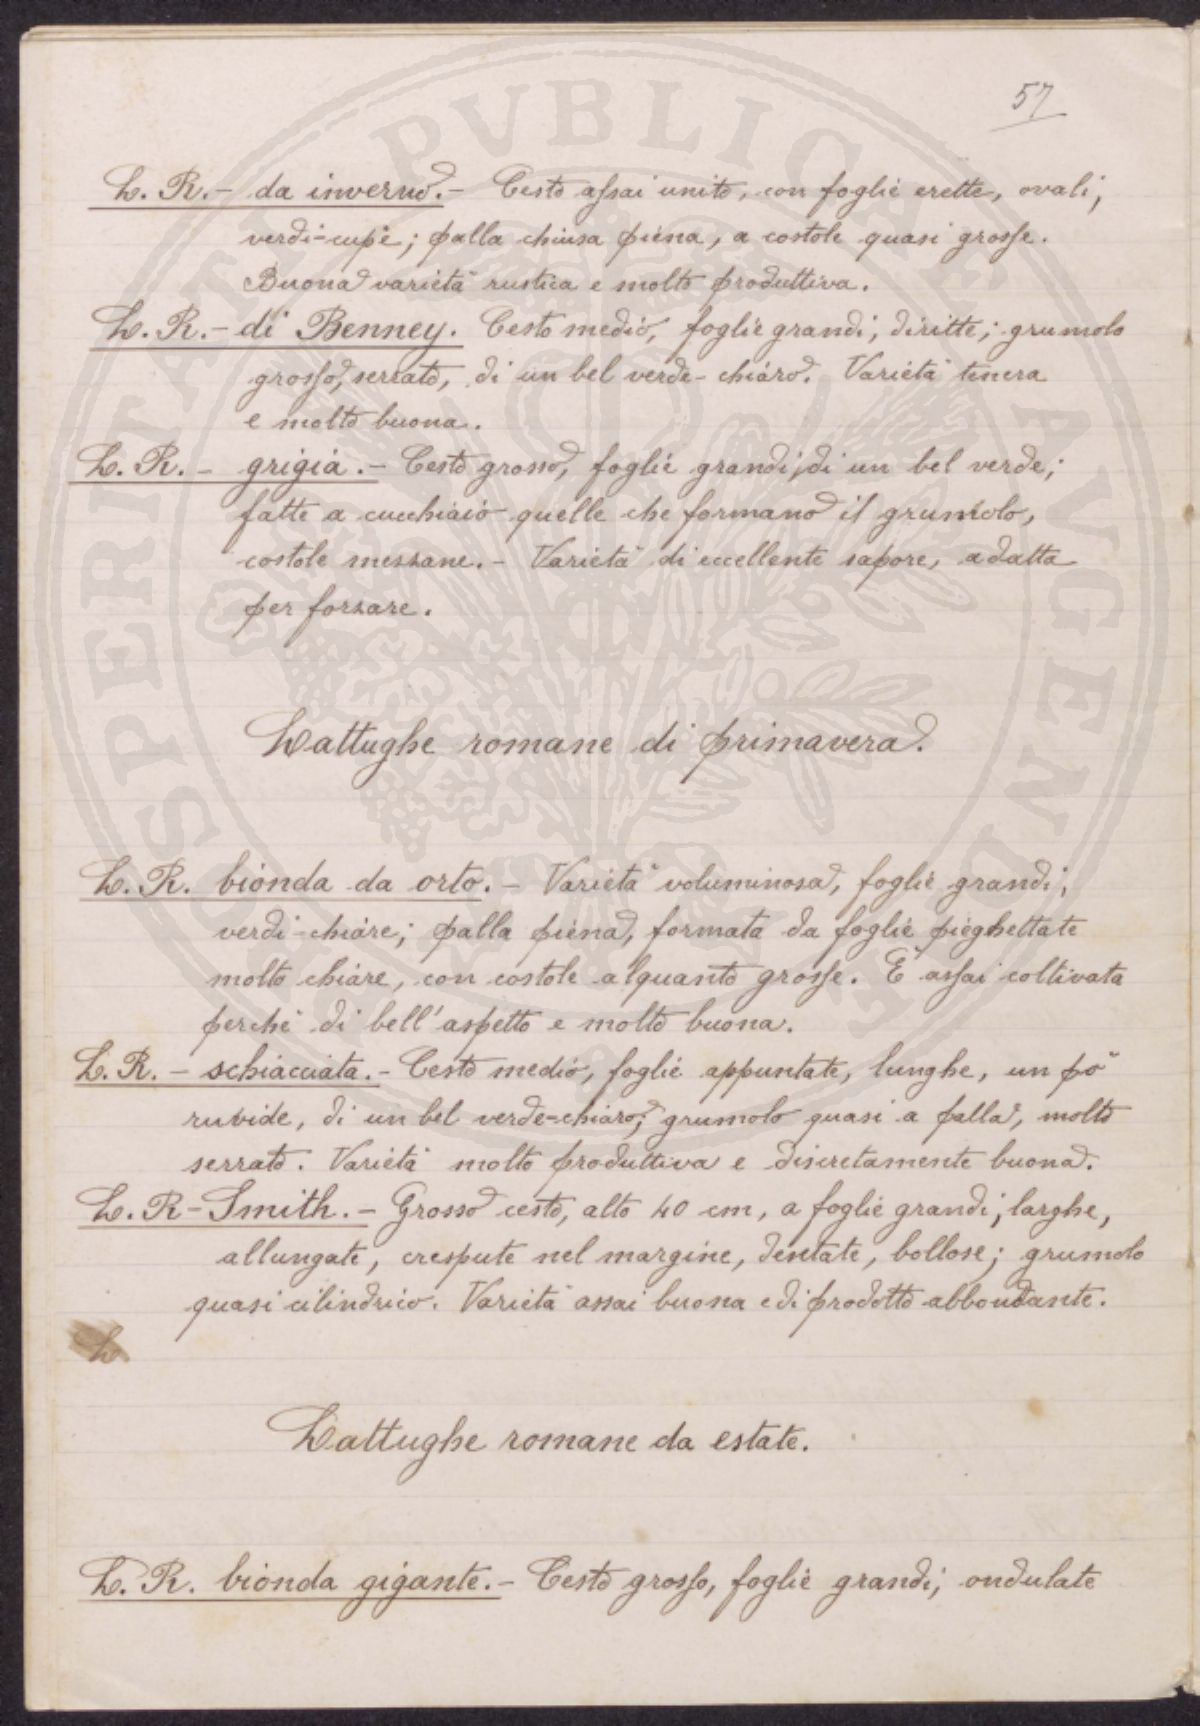 57
L. R. - da inverno. - Cesto assai unito, con foglie erette, ovali,
verdi-cupe; palla chiusa piena, a costole quasi grosse.
Buona varietà rustica e molto produttiva.
L. R. - di Benney. Cesto medio, foglie grandi, diritte; grumolo
grosso, serrato, di un bel verde-chiaro. Varietà tenera
e molto buona.
L. R. - grigia. - Cesto grosso, foglie grandi, di un bel verde;
fatte a cucchiaio quelle che formano il grumolo,
costole mezzane. - Varietà di eccellente sapore, adatta
per forzare.
Lattughe romane di primavera.
L. R. bionda da orto. - Varietà voluminosa, foglie grandi,
verdi-chiare; palla piena, formata da foglie pieghettate
molto chiare, con costole alquanto grosse. È assai coltivata
perché di bell'aspetto e molto buona.
L. R. - schiacciata. - Cesto medio, foglie appuntate, lunghe, un pò
ruvide, di un bel verde-chiaro; grumolo quasi a palla, molto
serrato. Varietà molto produttiva e discretamente buona.
L. R - Smith. - Grosso cesto, alto 40 cm, a foglie grandi, larghe,
allungate, crespute nel margine, dentate, bollose; grumolo
quasi cilindrico. Varietà assai buona e di prodotto abbondante.
L
Lattughe romane da estate.
L. R. bionda gigante. - Cesto grosso, foglie grandi, ondulate
PROSPERITATI PVBLICAE AVGENDAE